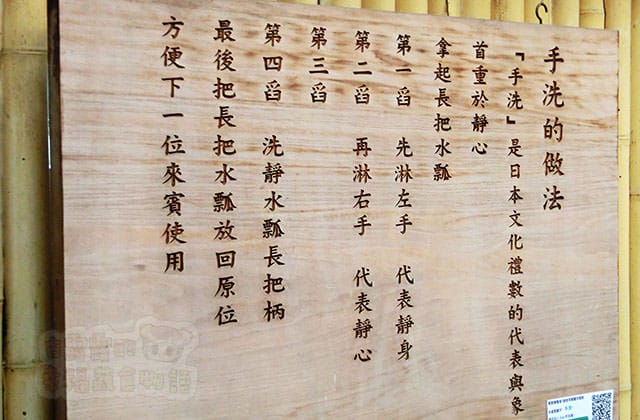 手洗的做法
『手洗』是日本文化禮數的代表與象
首重於靜心
拿起長把水瓢
第一舀 先淋左手 代表靜身
第二舀 再淋右手 代表靜心
第三舀
第四舀 洗靜水瓢長把柄
最後把長把水瓢放回原位
方便下一位來賓使用